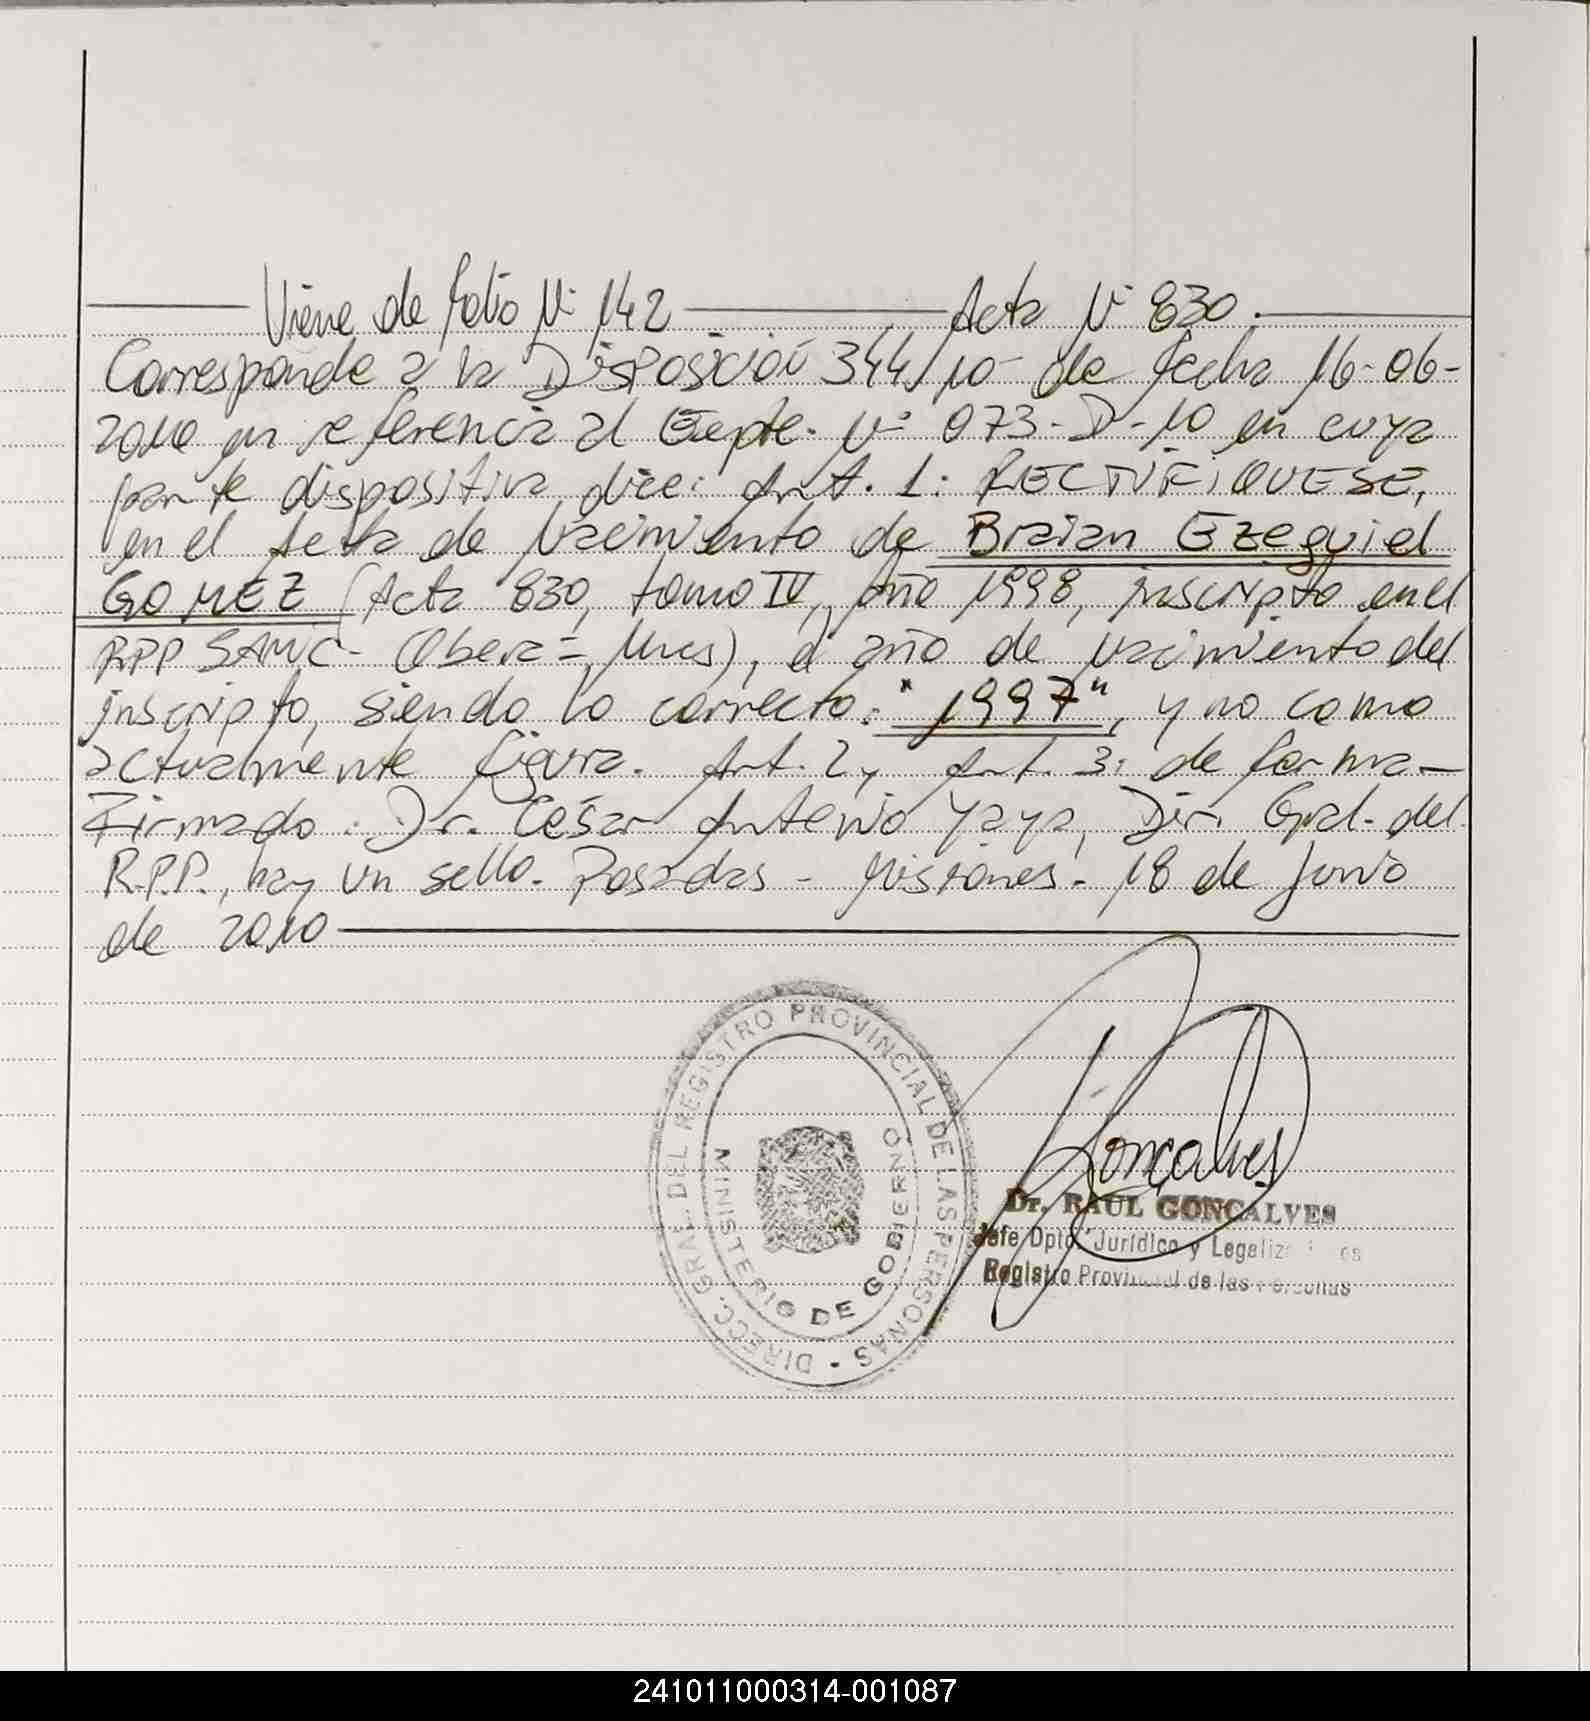 Viene de folio Nº 142 Acta Nº 830.
Corresponde a la Disposición 344/10 de fecha 16-06-
2010 en referencia al Expte. Nº 073-D-10 en cuya
parte dispositiva dice: Art. 1: RECTIFIQUESE,
en el Acta de Nacimiento de Braian Ezequiel
GOMEZ (Acta 830, tomo IV, Año 1998, inscripto en el
RPP (Obera-, Mnes), el año de nacimiento del
inscripto, siendo lo correcto: "1997", y no como
actualmente figura. Art. 2, Art. 3: de forma-
Firmado: Dr. César Antonio Yaya, Dir. Gral. del
R.P.P., hay un sello. Posadas - Misiones. 18 de Junio
de 2010
DIRECC. GRAL. DEL REGISTRO PROVINCIAL DE LAS PERSONAS -
MINISTERIO DE GOBIERNO
Gonçalves
Dr. RAUL GONCALVES
Jefe Dpto. Jurídico y
Registro Provincial de las Personas
241011000314-001087